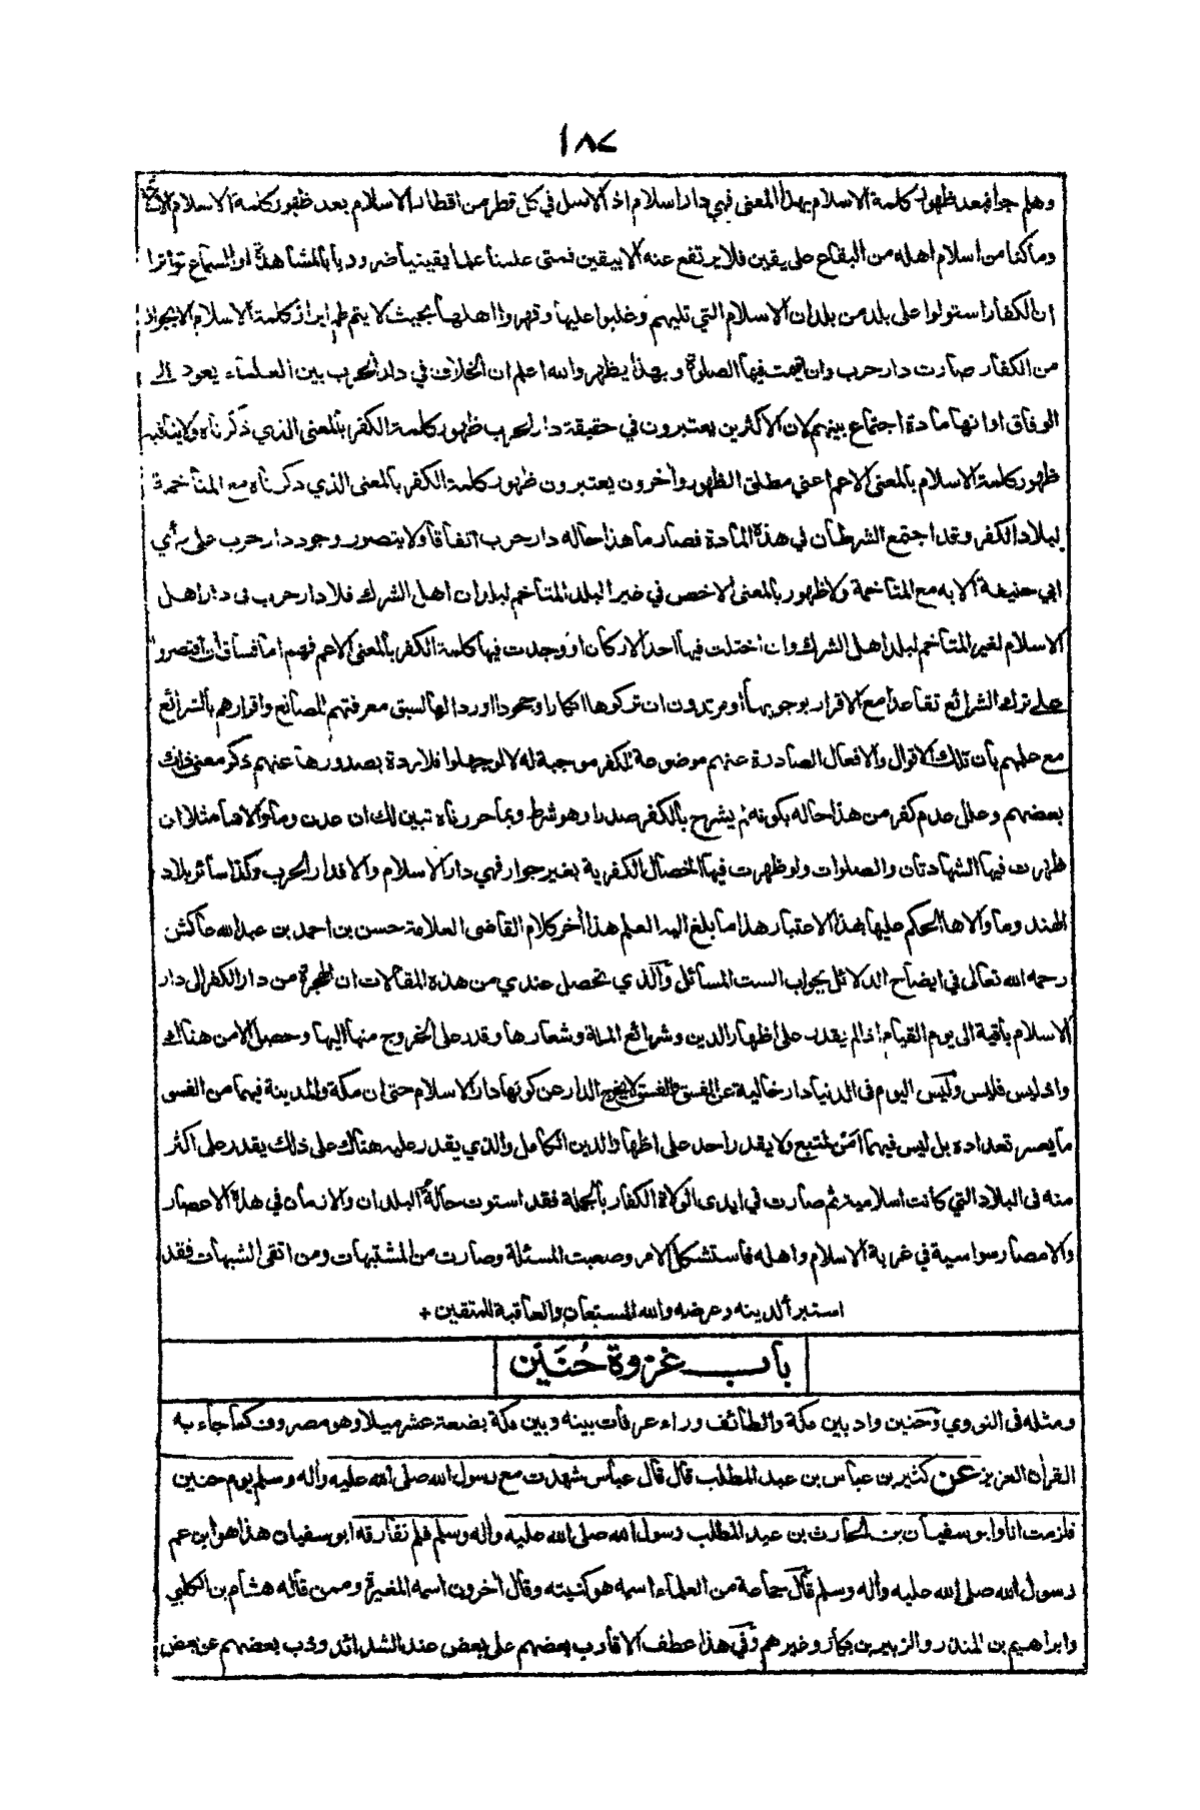 ١٨٧
وهلم جرا فبعد ظهور كلمة الاسلام بهذا المعنى فهي دار اسلام اذ الاصل في كل قطر من اقطار الاسلام بعد ظهور كلمة الاسلام
وما كنا من اسلام اهله من البقاع على يقين فلا يرتفع عنه الا بيقين فمتى علمنا علما يقينيا ضروريا بالمشاهدة او السماع تواترا
ان الكفار استولوا على بلد من بلدان الاسلام التي تليهم وغلبوا عليها وقهروا اهلها بحيث لا يتم لهم ابراز كلمة الاسلام الا بجوار
من الكفار صارت دار حرب وان اقيمت فيها الصلوة وبهذا يظهر والله اعلم ان الخلاف في دار الحرب بين العلماء يعود الى
الوفاق اوانها مادة اجتماع بينهم لان الاكثرين يعتبرون في حقيقة دار الحرب ظهور كلمة الكفر بالمعنى الذي ذكرناه ولا ينافيه
ظهور كلمة الاسلام بالمعنى الاعم اعني مطلق الظهور وآخرون يعتبرون ظهور كلمة الكفر بالمعنى الذي ذكرناه مع المتاخمة
لبلاد الكفر وقد اجتمع الشرطان في هذه المادة فصار ما هذا حاله دار حرب اتفاقا ولا يتصور وجود دار حرب على رأي
ابي حنيفة الا به مع المتاخمة ولا ظهور بالمعنى الاخص في غير البلد المتاخم لبلدان اهل الشرك فلا دار حرب فى دار اهل
الاسلام لغير المتاخم لبلد اهل الشرك وان اختلت فيها احد الاركان او وجدت فيها كلمة الكفر بالمعنى الاعم فهم اما فساق ان اقتصروا
على ترك الشرائع تقاعدا مع الاقرار بوجوبها او مرتدون ان تركوها انكارا وجحودا او ردا لها لسبق معرفتهم للصانع واقرارهم بالشرائع
مع علمهم بان تلك الاقوال والافعال الصادرة عنهم موضوعة للكفر موجبة له لا لو جهلوا فلا ردة بصدورها عنهم ذكر معنى ذلك
بعضهم وعلل عدم كفر من هذا حاله بكونه لم يشرح بالكفر صدرا وهو شرط وبما حررناه تبين لك ان عدن وما والاها مثلا ان
ظهرت فيها الشهادتان والصلوات ولو ظهرت فيها الخصال الكفرية بغير جوار فهي دار الاسلام والا فدار الحرب وكذا سائر بلاد
الهند وما والاها الحكم عليها بهذا الاعتبار هذا ما بلغ اليه العلم هذا آخر كلام القاضى العلامة حسن بن احمد بن عبد الله عاكش
رحمه الله تعالى في ايضاح الدلائل بجواب الست المسائل والذي تحصل عندي من هذه المقالات ان الهجرة من دار الكفر الى دار
الاسلام باقية الى يوم القيام اذا لم يقدر على اظهار الدين وشرائع الملة وشعارها وقدر على الخروج منها اليها وحصل الامن هنالك
واذ ليس فليس وليس اليوم فى الدنيا دار خالية عن الفسق والفسق لا يخرج الدار عن كونها دار الاسلام حتى ان مكة والمدينة فيهما من الفسق
ما يعسر تعداده بل ليس فيهما امن لمتبع ولا يقدر احد على اظهار الدين الكامل والذي يقدر عليه هناك على ذلك يقدر على اكثر
منه فى البلاد التي كانت اسلامية ثم صارت في ايدى الولاة الكفار بالجملة فقد استوت حالة البلدان والازمان في هذا الاعصار
والامصار سواسية في غربة الاسلام واهله فاستشكل الامر وصعبت المسئلة وصارت من المشتبهات ومن اتقى الشبهات فقد
استبرأ لدينه وعرضه والله المستعان والعاقبة للمتقين +
باب غزوة حُنَيْن
ومثله فى النووي وحنين واد بين مكة والطائف وراء عرفات بينه وبين مكة بضعة عشر ميلا وهو مصروف كما جاء به
القرآن العزيز عن كثير بن عباس بن عبد المطلب قال قال عباس شهدت مع رسول الله صلى الله عليه وآله وسلم يوم حنين
فلزمت انا وابو سفيان بن الحارث بن عبد المطلب رسول الله صلى الله عليه وآله وسلم فلم نفارقه ابو سفيان هذا هو ابن عم
رسول الله صلى الله عليه وآله وسلم قال جماعة من العلماء اسمه هو كنيته وقال آخرون اسمه المغيرة وممن قاله هشام بن الكلبي
وابراهيم بن المنذر والزبير بن بكار وغيرهم وفي هذا عطف الاقارب بعضهم على بعض عند الشدائد وذب بعضهم عن بعض